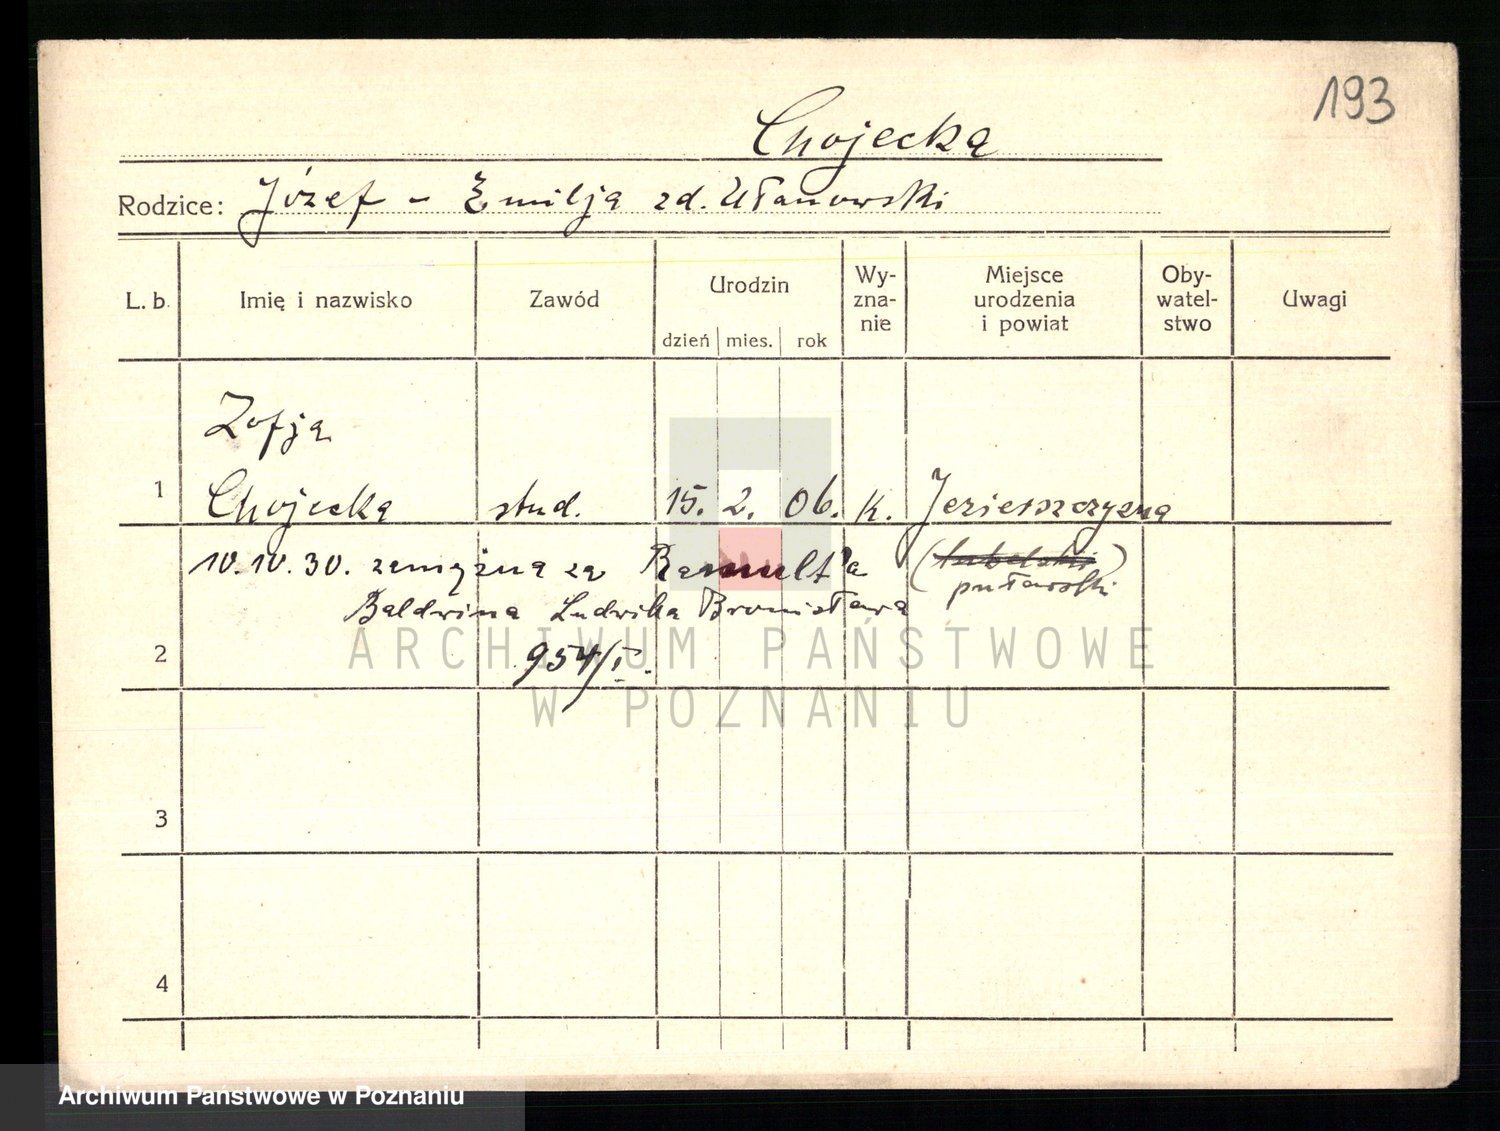 193
Chojecka
Rodzice: Józef - Emilja zd. Ułanowski
L. b. Imię i nazwisko Zawód Urodzin Wy-zna-nie Miejsce urodzenia i powiat Oby-watel-stwo Uwagi
dzień mies. rok
Zofja
1 Chojecka stud. 15. 2. 06. K. Jezierszczyzna
10.10.30. zamężna za Ramułt'a (lubelski)
puławski
Baldwina Ludwika Bronisława
2 954/I.
ARCHIWUM PAŃSTWOWE
W POZNANIU
3
4
Archiwum Państwowe w Poznaniu